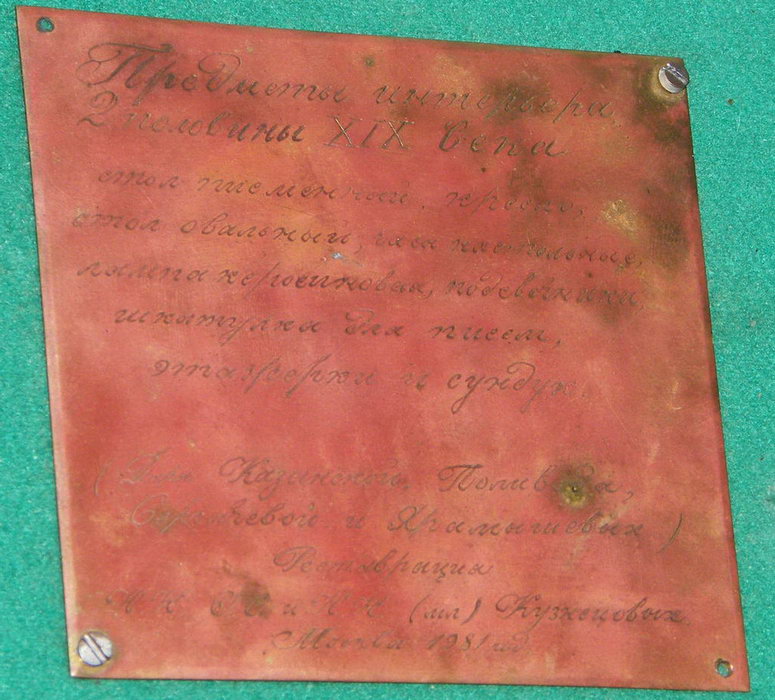 Предметы интерьера
2 половины XIX века
стол писменный, кресло,
стол овальный, часы настольные,
лампа керосиновая, подсвечники
шкатулка для писем,
этажерки и сундук
(Дом Казанского, Поливода,
и Храмышевых)
Реставрация
и Н.Н. (мл) Кузнецовых
Москва 1981 год